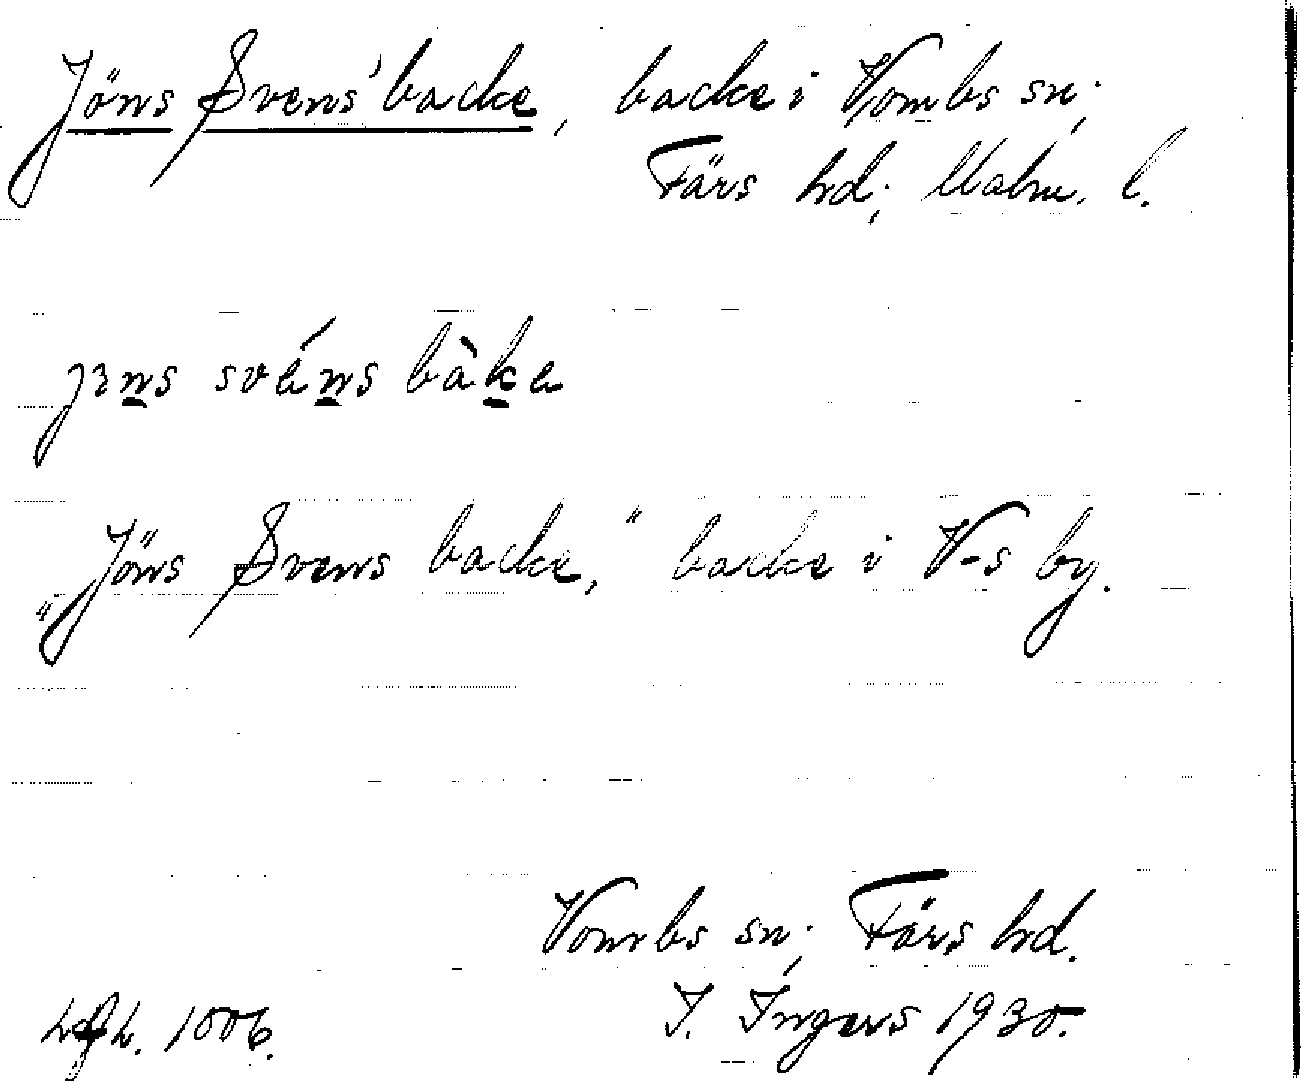 Jöns Svens' backe, backe i Vombs sn;
Färs hd; Malm. l.
svéns bàka
"Jöns Svens backe," backe i V-s by.
Vombs sn; Färs hd.
1006. I. Ingers 1930.